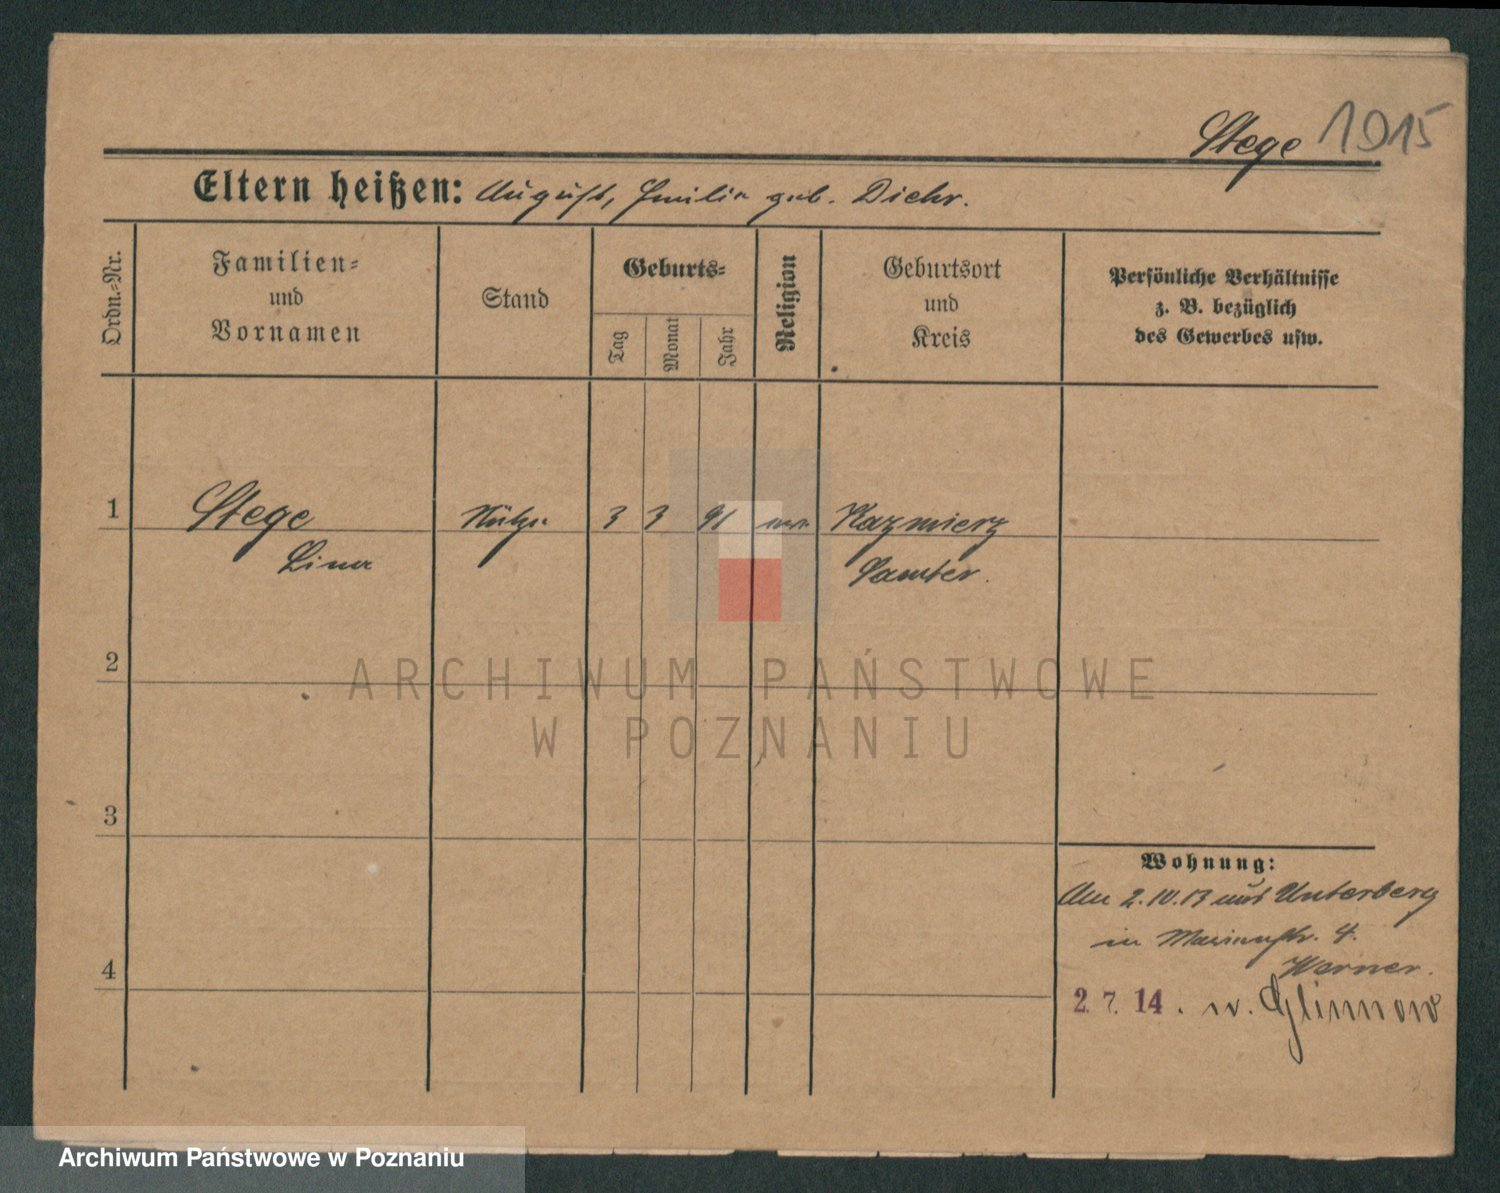 Stege 1915
Eltern heißen: August, Emilie geb. Diehr.
Ordn.-Nr.
Familien-
und
Vornamen
Stand
Geburts-
Tag
Monat
Jahr
Religion
Geburtsort
und
Kreis
Persönliche Verhältnisse
z. B. bezüglich
des Gewerbes usw.
1
Stege
Lina
Stütze
3 3 91
Kazmierz
Samter.
2
3
4
Wohnung:
Am 2.10.13 aus Unterberg
in 4.
Werner.
2. 7. 14. n. Glinnow
ARCHIWUM PAŃSTWOWE
W POZNANIU
Archiwum Państwowe w Poznaniu